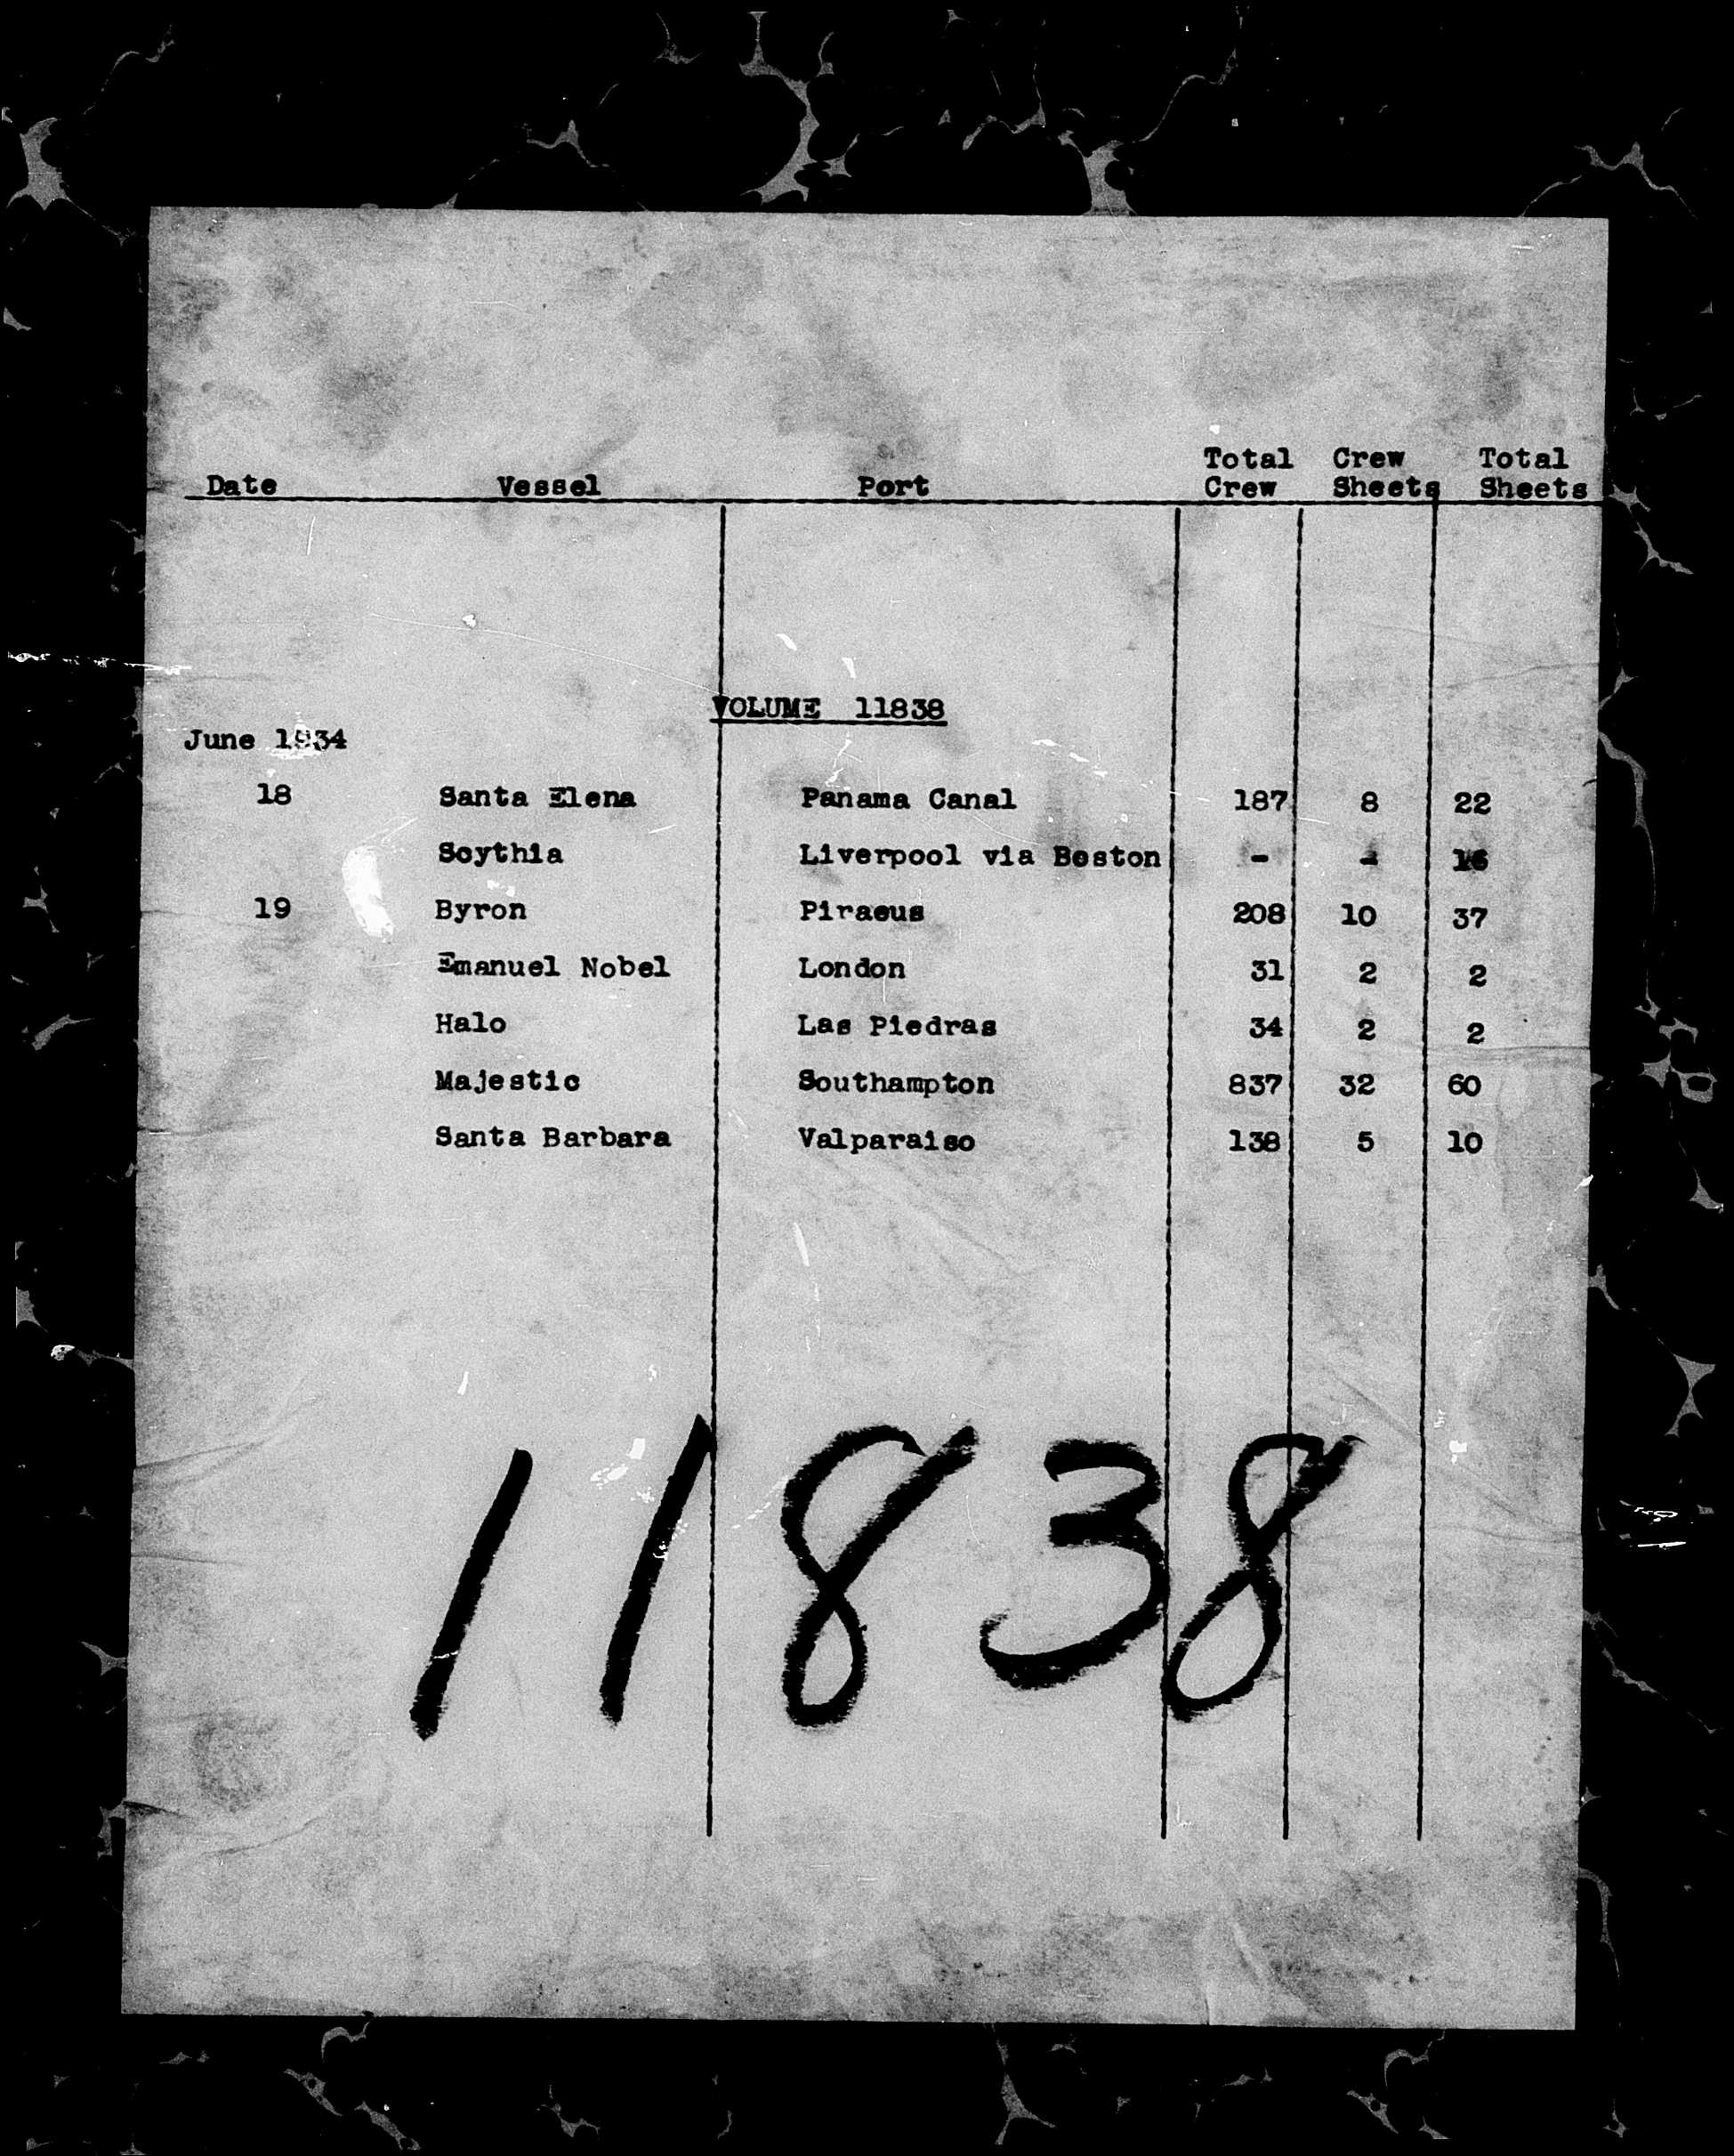 Date Vessel Port Total Crew Crew Sheets Total Sheets
VOLUME 11838
June 1934
18 Santa Elena Panama Canal 187 8 22
Scythia Liverpool via Boston - - 16
19 Byron Piraeus 208 10 37
Emanuel Nobel London 31 2 2
Halo Las Piedras 34 2 2
Majestic Southampton 837 32 60
Santa Barbara Valparaiso 138 5 10
11838